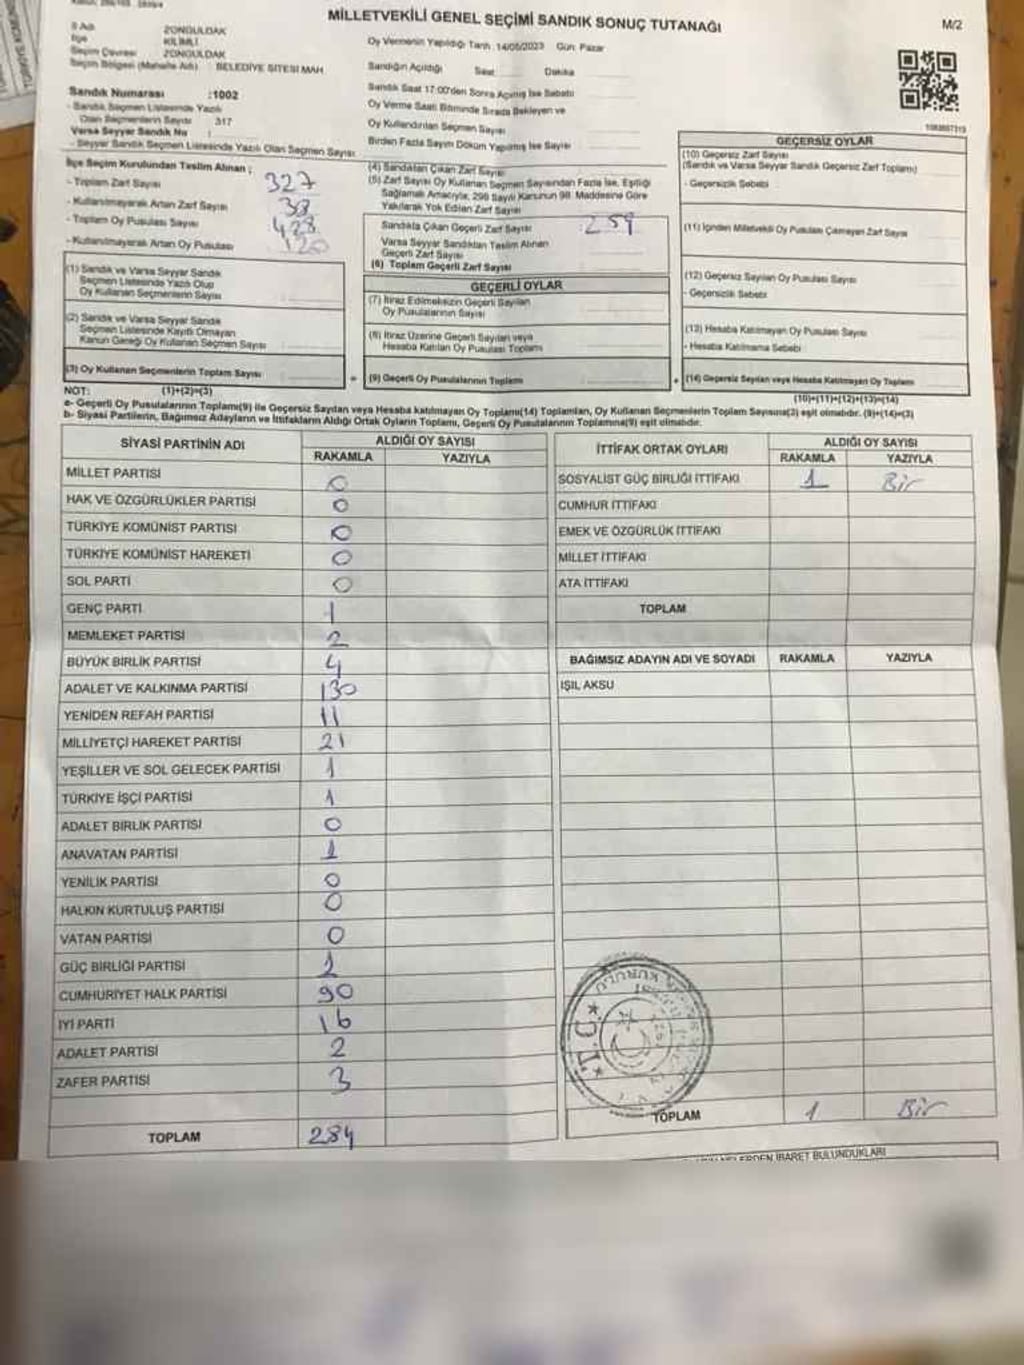 MİLLETVEKİLİ GENEL SEÇİMİ SANDIK SONUÇ TUTANAĞI
M/2
İl Adı ZONGULDAK
İlçe KİLİMLİ
Seçim Çevresi ZONGULDAK
Seçim Bölgesi (Mahalle Adı) : BELEDİYE SİTESİ MAH
Sandık Numarası :1002
- Sandık Seçmen Listesinde Yazılı
Olan Seçmenlerin Sayısı 317
Varsa Seyyar Sandık No :
- Seyyar Sandık Seçmen Listesinde Yazılı Olan Seçmen Sayısı
Oy Vermenin Yapıldığı Tarih: 14/05/2023 Gün: Pazar
Sandığın Açıldığı Saat Dakika
Sandık Saat 17:00'den Sonra Açılmış İse Sebebi
Oy Verme Saati Bitiminde Sırada Bekleyen ve
Oy Kullandırılan Seçmen Sayısı
Birden Fazla Sayım Döküm Yapılmış İse Sayısı
İlçe Seçim Kurulundan Teslim Alınan ;
- Toplam Zarf Sayısı 327
- Kullanılmayarak Artan Zarf Sayısı 38
- Toplam Oy Pusulası Sayısı 428
- Kullanılmayarak Artan Oy Pusulası 120
(1) Sandık ve Varsa Seyyar Sandık
Seçmen Listesinde Yazılı Olup
Oy Kullanan Seçmenlerin Sayısı
(2) Sandık ve Varsa Seyyar Sandık
Seçmen Listesinde Kayıtlı Olmayan
Kanun Gereği Oy Kullanan Seçmen Sayısı
(3) Oy Kullanan Seçmenlerin Toplam Sayısı
(4) Sandıktan Çıkan Zarf Sayısı
(5) Zarf Sayısı Oy Kullanan Seçmen Sayısından Fazla İse, Eşitliği
Sağlamak Amacıyla, 298 Sayılı Kanunun 98. Maddesine Göre
Yakılarak Yok Edilen Zarf Sayısı
Sandıkta Çıkan Geçerli Zarf Sayısı : 259
Varsa Seyyar Sandıktan Teslim Alınan
Geçerli Zarf Sayısı
(6) Toplam Geçerli Zarf Sayısı
GEÇERLİ OYLAR
(7) İtiraz Edilmeksizin Geçerli Sayılan
Oy Pusulalarının Sayısı
(8) İtiraz Üzerine Geçerli Sayılan veya
Hesaba Katılan Oy Pusulası Toplamı
= (9) Geçerli Oy Pusulalarının Toplamı
GEÇERSİZ OYLAR
(10) Geçersiz Zarf Sayısı
(Sandık ve Varsa Seyyar Sandık Geçersiz Zarf Toplamı)
- Geçersizlik Sebebi
(11) İçinden Milletvekili Oy Pusulası Çıkmayan Zarf Sayısı
(12) Geçersiz Sayılan Oy Pusulası Sayısı
- Geçersizlik Sebebi
(13) Hesaba Katılmayan Oy Pusulası Sayısı
- Hesaba Katılmama Sebebi
+ (14) Geçersiz Sayılan veya Hesaba Katılmayan Oy Toplamı
NOT: (1)+(2)=(3) (10)+(11)+(12)+(13)=(14)
a- Geçerli Oy Pusulalarının Toplamı(9) ile Geçersiz Sayılan veya Hesaba katılmayan Oy Toplamı(14) Toplamları, Oy Kullanan Seçmenlerin Toplam Sayısına(3) eşit olmalıdır. (9)+(14)=(3)
b- Siyasi Partilerin, Bağımsız Adayların ve İttifakların Aldığı Ortak Oyların Toplamı, Geçerli Oy Pusulalarının Toplamına(9) eşit olmalıdır.
SİYASİ PARTİNİN ADI ALDIĞI OY SAYISI
RAKAMLA YAZIYLA
MİLLET PARTİSİ 0
HAK VE ÖZGÜRLÜKLER PARTİSİ 0
TÜRKİYE KOMÜNİST PARTİSİ 0
TÜRKİYE KOMÜNİST HAREKETİ 0
SOL PARTİ 0
GENÇ PARTİ 1
MEMLEKET PARTİSİ 2
BÜYÜK BİRLİK PARTİSİ 4
ADALET VE KALKINMA PARTİSİ 130
YENİDEN REFAH PARTİSİ 11
MİLLİYETÇİ HAREKET PARTİSİ 21
YEŞİLLER VE SOL GELECEK PARTİSİ 1
TÜRKİYE İŞÇİ PARTİSİ 1
ADALET BİRLİK PARTİSİ 0
ANAVATAN PARTİSİ 1
YENİLİK PARTİSİ 0
HALKIN KURTULUŞ PARTİSİ 0
VATAN PARTİSİ 0
GÜÇ BİRLİĞİ PARTİSİ 1
CUMHURİYET HALK PARTİSİ 90
İYİ PARTİ 16
ADALET PARTİSİ 2
ZAFER PARTİSİ 3
TOPLAM 284
İTTİFAK ORTAK OYLARI ALDIĞI OY SAYISI
RAKAMLA YAZIYLA
SOSYALİST GÜÇ BİRLİĞİ İTTİFAKI 1 Bir
CUMHUR İTTİFAKI
EMEK VE ÖZGÜRLÜK İTTİFAKI
MİLLET İTTİFAKI
ATA İTTİFAKI
TOPLAM
BAĞIMSIZ ADAYIN ADI VE SOYADI RAKAMLA YAZIYLA
IŞIL AKSU
T.C.
TOPLAM 1 Bir
NELERDEN İBARET BULUNDUKLARI